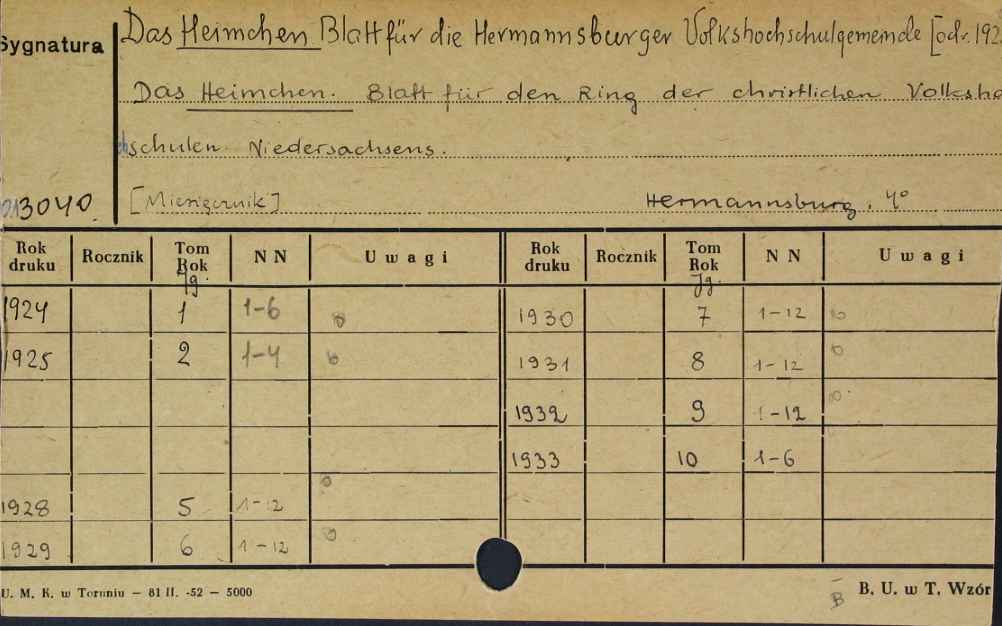 Sygnatura Das Heimchen Blatt für die Hermannsburger Volkshochschulgemeinde [od r. 192
Das Heimchen. Blatt für den Ring der christlichen Volksho
chschulen Niedersachsens.
013040. [Miesięcznik] Hermannsburg. 4°
Rok druku Rocznik Tom Rok Jg. NN Uwagi Rok druku Rocznik Tom Rok Jg. NN Uwagi
1924 1 1-6 1930 7 1-12
1925 2 1-4 1931 8 1-12
1932 9 1-12
1933 10 1-6
1928 5 1-12
1929 6 1-12
U. M. K. w Toruniu — 81 II. -52 — 5000 B B. U. w T. Wzór